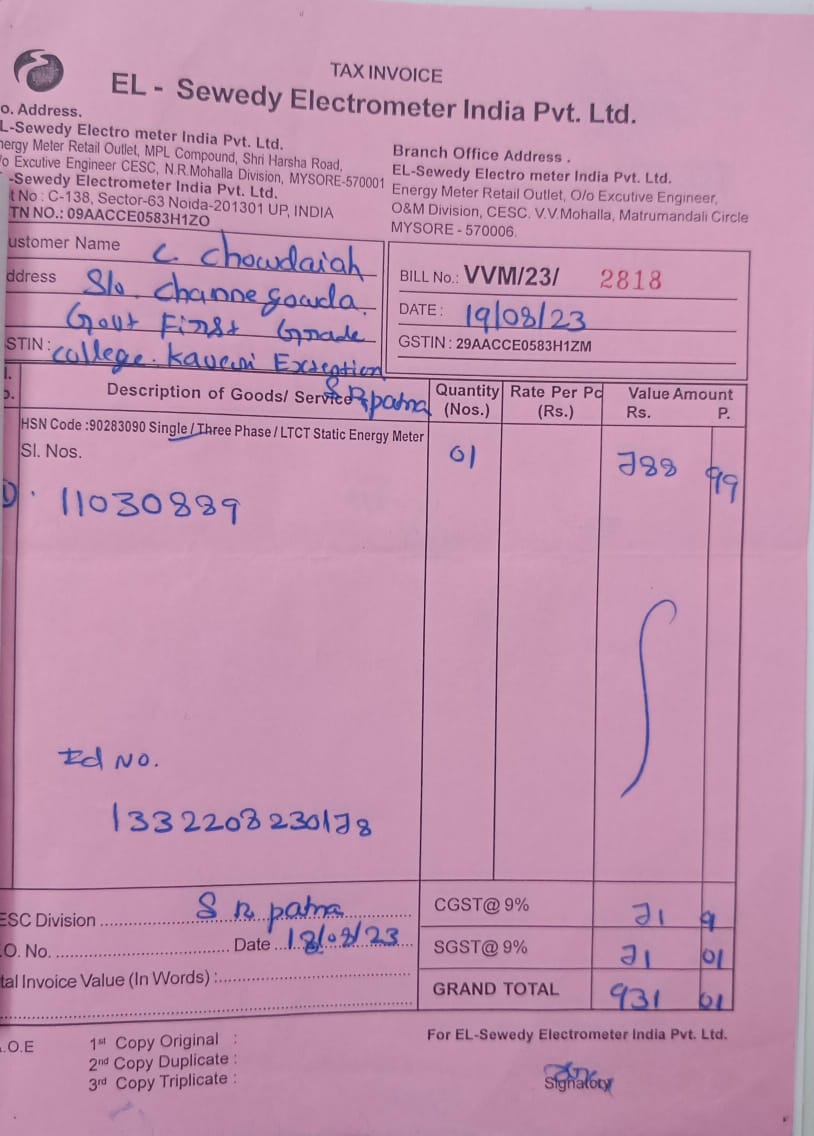 TAX INVOICE
EL - Sewedy Electrometer India Pvt. Ltd.
o. Address.
L-Sewedy Electro meter India Pvt. Ltd.
nergy Meter Retail Outlet, MPL Compound, Shri Harsha Road,
/o Excutive Engineer CESC, N.R.Mohalla Division, MYSORE-570001
-Sewedy Electrometer India Pvt. Ltd.
t No : C-138, Sector-63 Noida-201301 UP, INDIA
TN NO.: 09AACCE0583H1ZO
Branch Office Address .
EL-Sewedy Electro meter India Pvt. Ltd.
Energy Meter Retail Outlet, O/o Excutive Engineer,
O&M Division, CESC. V.V.Mohalla, Matrumandali Circle
MYSORE - 570006.
ustomer Name C. Chowdaiah
ddress S/o. Channegowda.
Govt First Grade
STIN : college. Kaveri Extention
S R patna
BILL No.: VVM/23/ 2818
DATE : 19/08/23
GSTIN : 29AACCE0583H1ZM
Description of Goods/ Service Quantity (Nos.) Rate Per Pc (Rs.) Value Amount Rs. P.
HSN Code :90283090 Single / Three Phase / LTCT Static Energy Meter
Sl. Nos. 01 788 99
1). 11030889
Id No.
1332208230178
ESC Division S R patna
.O. No. Date 18/08/23
tal Invoice Value (In Words) :
CGST@ 9% 71 9
SGST@ 9% 71 01
GRAND TOTAL 931 01
.O.E
1st Copy Original :
2nd Copy Duplicate :
3rd Copy Triplicate :
For EL-Sewedy Electrometer India Pvt. Ltd.
Signatory